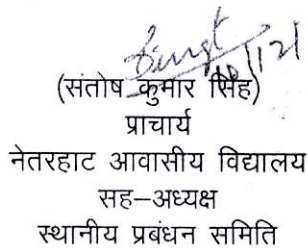 10/12/
(संतोष कुमार सिंह)
प्राचार्य
नेतरहाट आवासीय विद्यालय
सह–अध्यक्ष
स्थानीय प्रबंधन समिति